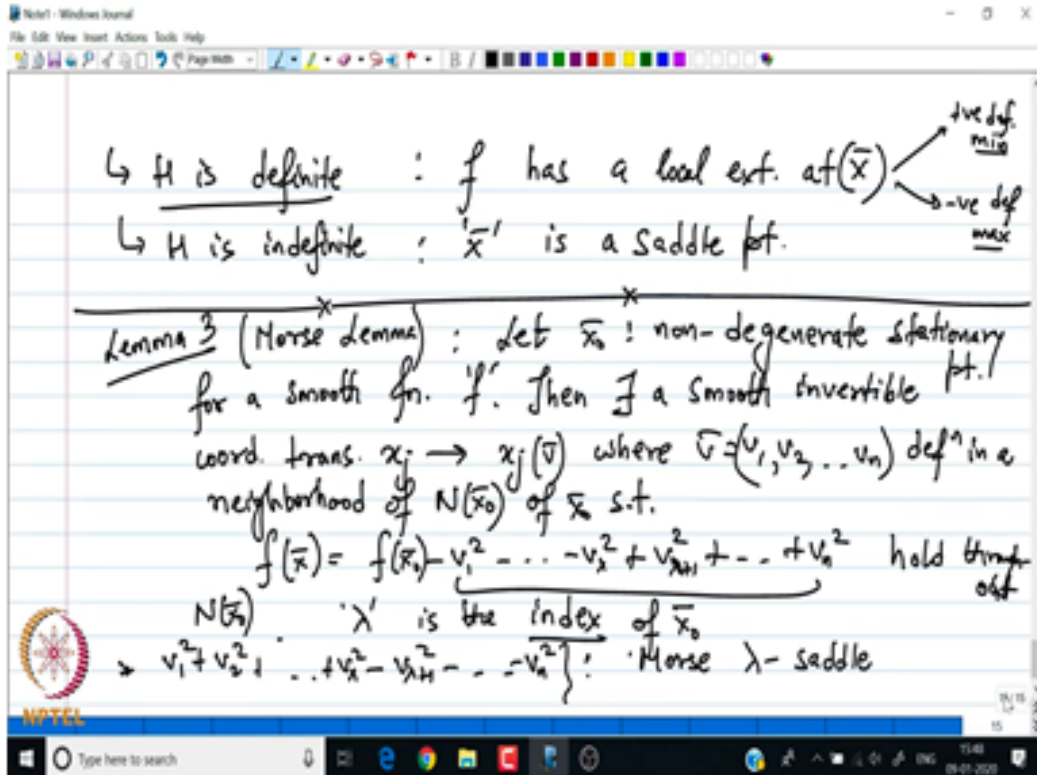 Note1 - Windows Journal
File Edit View Insert Actions Tools Help
Page Width
B I
↳ H is definite : f has a local ext. at (x̄)
+ve def. min
-ve def max
↳ H is indefinite : 'x̄' is a saddle pt.
Lemma 3 (Morse Lemma) : Let x̄₀ : non-degenerate stationary pt.
for a smooth fn. 'f'. Then ∃ a smooth invertible
coord. trans. xⱼ → xⱼ(v̄) where v̄ = (v₁, v₂, .. vₙ) defⁿ in a
neighborhood of N(x̄₀) of x̄₀ s.t.
f(x̄) = f(x̄₀) - v₁² - ... - v_λ² + v_λ+1² + - .. + vₙ² hold through out
N(x̄₀) 'λ' is the index of x̄₀
→ v₁² + v₂² + ... + v_λ² - v_λ+1² - .. - vₙ² } : Morse λ - saddle
NPTEL
15/15
15
Type here to search
ENG
15:48
09-01-2020